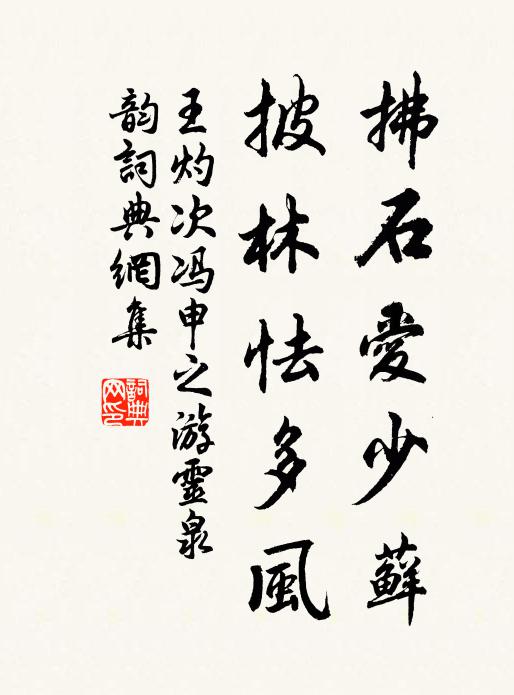 拂石愛少蘚
披林怯多風
王灼次冯申之游靈泉
韵詞典網集
詞典网印